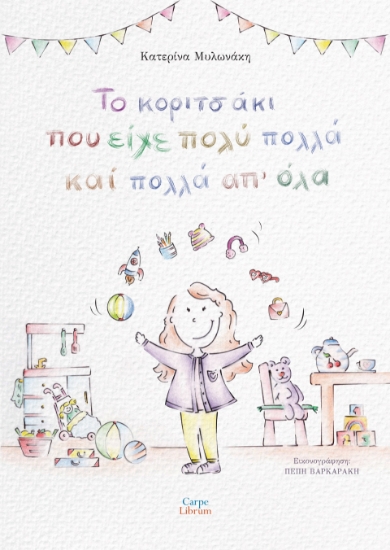 Κατερίνα Μυλωνάκη
Το κοριτσάκι
που είχε πολύ πολλά
καί πολλά απ' όλα
Εικονογράφηση:
ΠΕΠΗ ΒΑΡΚΑΡΑΚΗ
Carpe
Librum